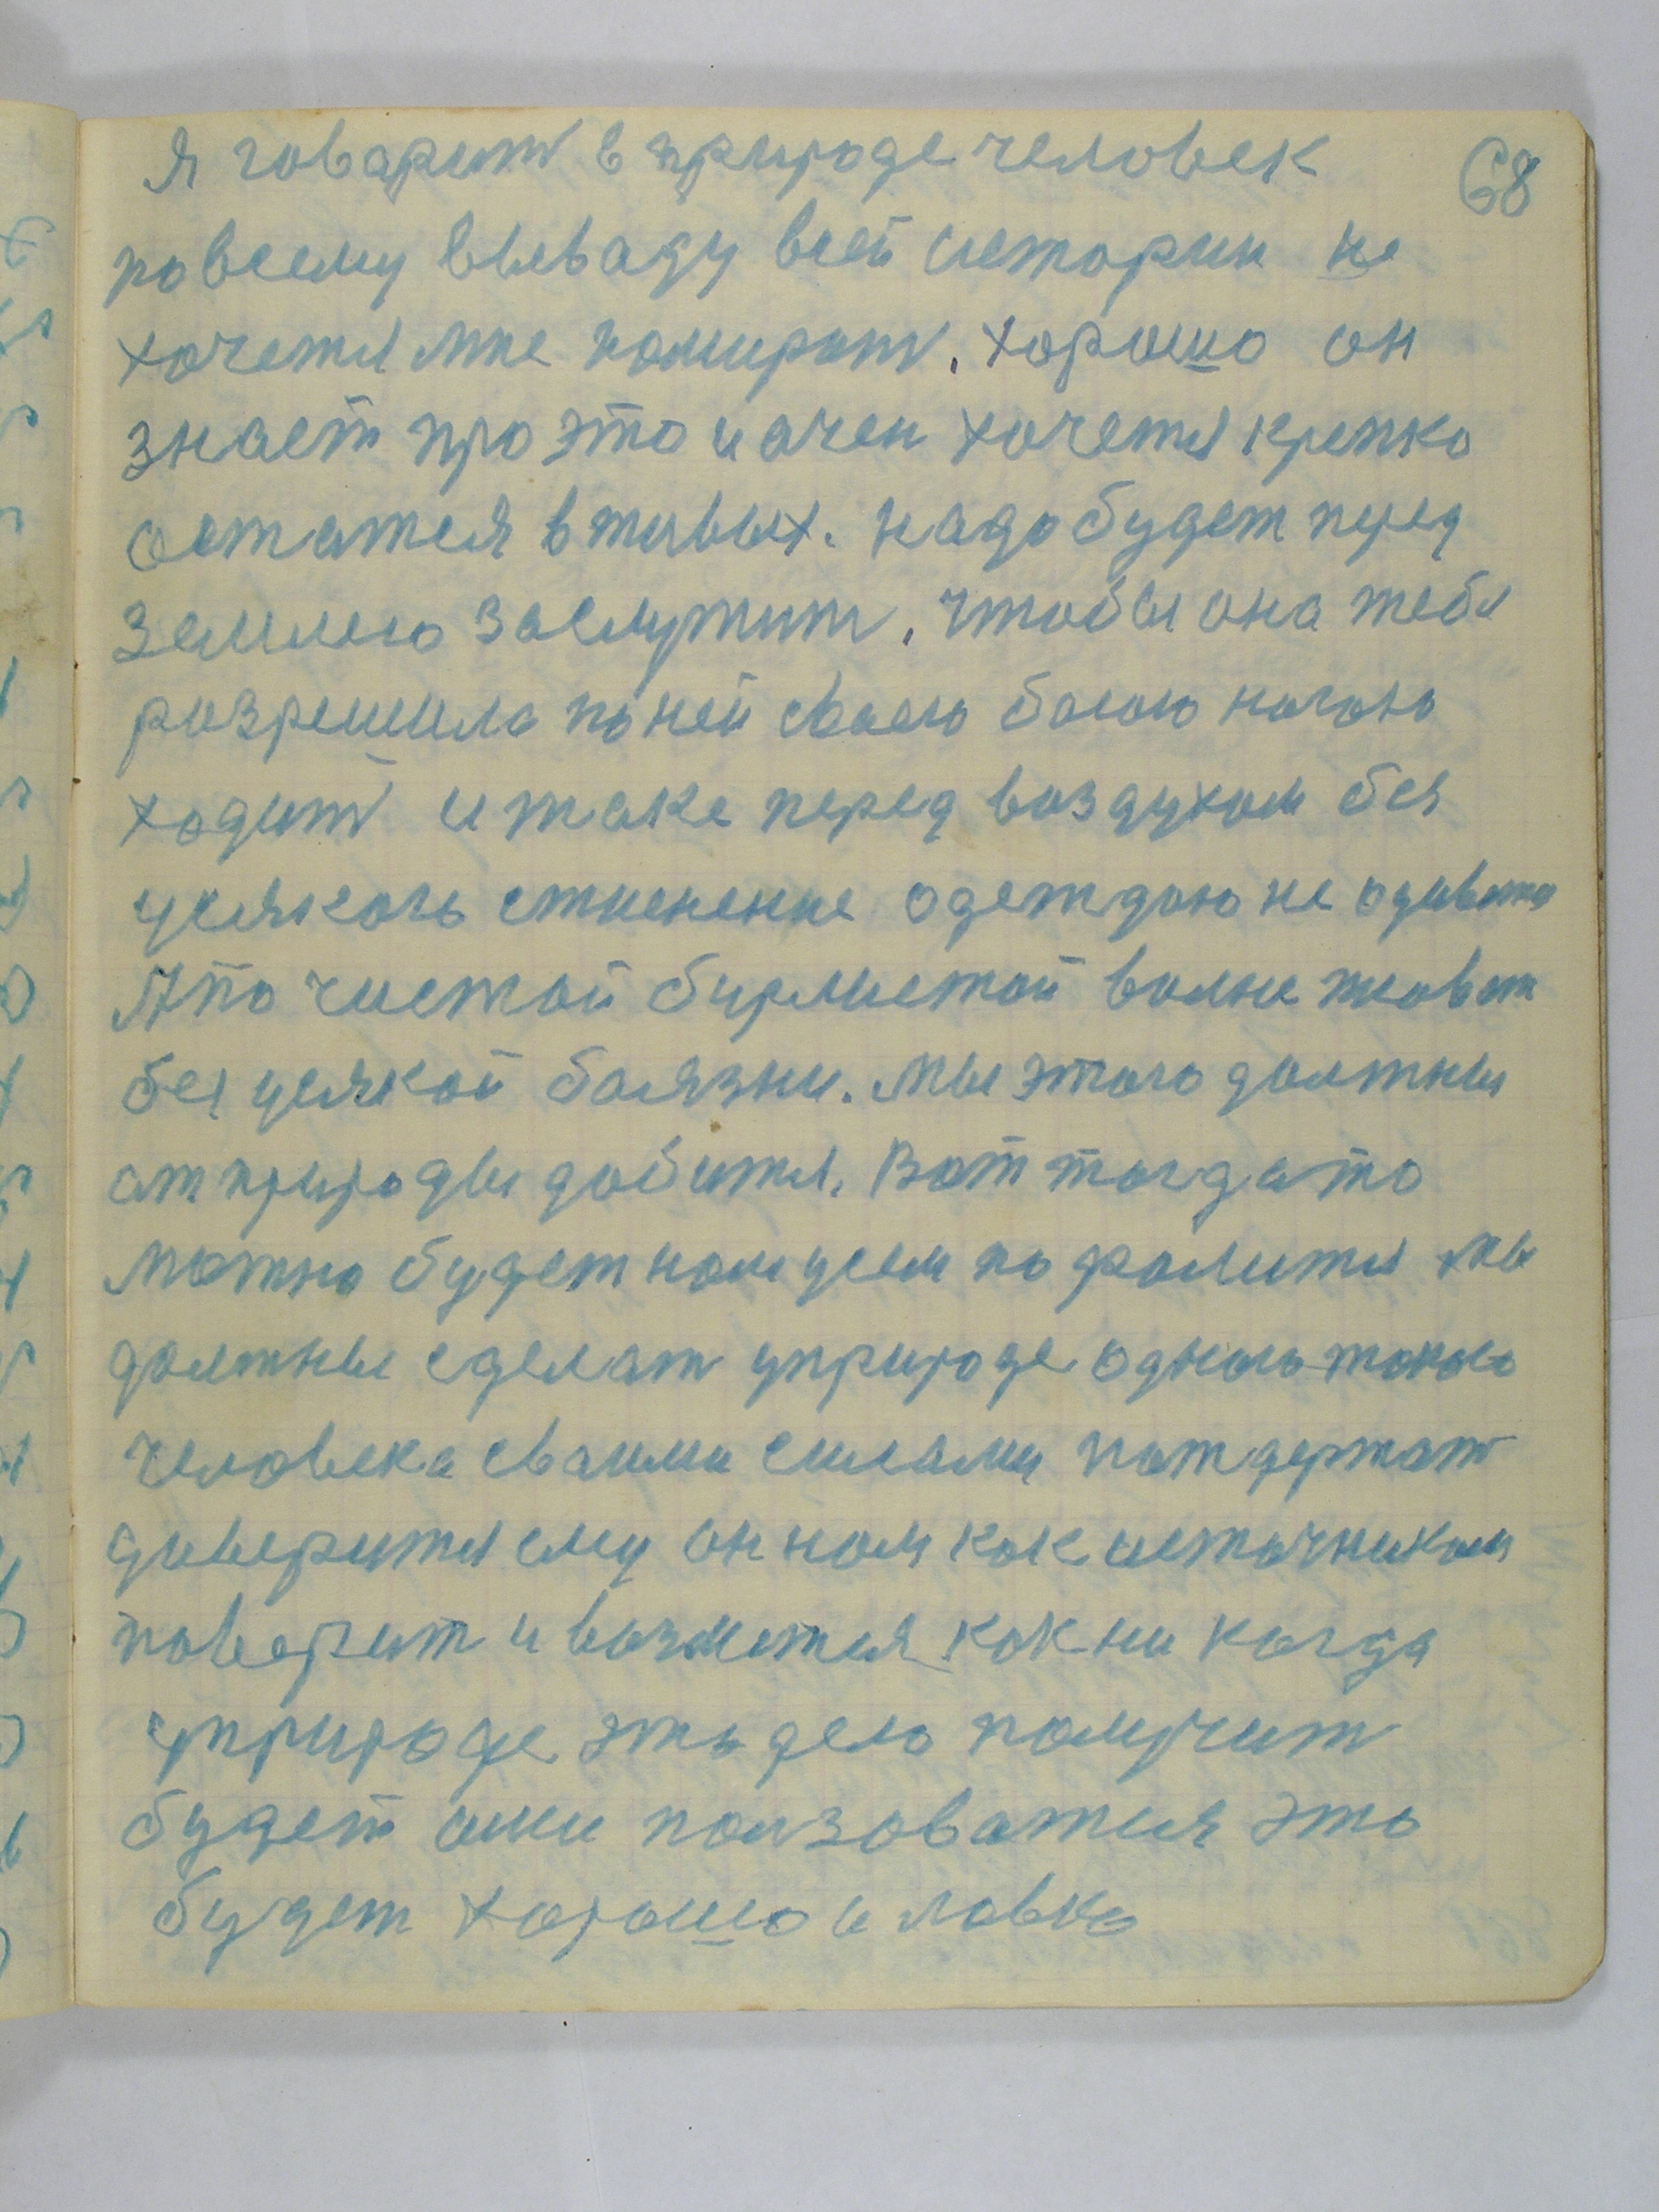 68
Я говарит в природе человек
по всему вываду всей истории не
хочетя мне помират. хорошо он
знает про это и очен хочетя крепко
остатся в живых. надо будет перед
землею заслужит, чтобы она тебя
розрешила по ней своею босою ногою
ходит и таке перед воздухом без
усякого стиснение одеждою не
А по чистой волне
без усякой боязни. мы этого должны
от природы добитя. Вот тогда то
можно будет нам усем по фалитя мы
должны сделат уприроде одного такого
человека сваими силами патдержат
даверитя ему он нам как источником
поверит и возметия как ни когда
уприроде это дело получит
будет ими ползоватия это
будет хорошо и ловко